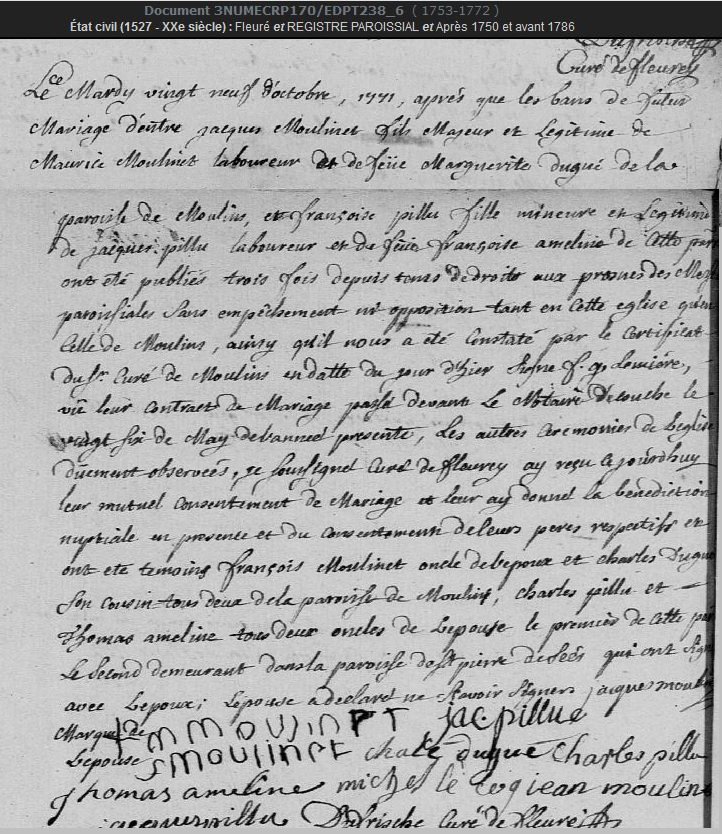 Document 3NUMECRP170/EDPT238_6 ( 1753-1772 )
État civil (1527 - XXe siècle) : Fleuré et REGISTRE PAROISSIAL et Après 1750 et avant 1786
Curé de fleurey
Le Mardy vingt neuf d'octobre, 1771, après que les bans de futur
Mariage d'entre jacques Moulinet fils Majeur et Legitime de
Maurice Moulinet laboureur et de feüe Marguerite dugué de la
paroisse de Moulins, et françoise pillu fille mineure et Legitime
de jacques pillu laboureur et de feüe françoise ameline de Cette par
ont été publiés trois fois depuis tems de droits aux prosnes des Mes
paroissiales Sans empêchement ni opposition tant en Cette eglise qu'en
Celle de Moulins, ainsy qu'il nous a été Constaté par le Certificat
du Sr. Curé de Moulins en datte du jour d'hier Signe
vû leur Contract de Mariage passé devant Le Notaire d'ecouche le
vingt six de May de l'année presente, Les autres Ceremonies de l'eglise
düement observées, je soussigné Curé de fleurey ay reçu Cejourdhuy
leur mutuel Consentement de Mariage et leur ay donné la benediction
nuptiale en presence et du Consentement de leurs peres respectifs et
ont eté temoins françois Moulinet oncle de l'epoux et Charles Dugué
Son Cousin tous deux de la parroisse de Moulins, Charles pillu et
Thomas ameline tous deux oncles de L'epouse le premier de Cette par
Le Second demeurant dans la paroisse de st pierre de Séés qui ont Sign
avec L'epoux; L'epouse a declaré ne Sçavoir Signer, jacques moulin
Marque de
L'epouse
M MOUSINET jac pillue
MOULINET charle dugue Charles pillu
Thomas ameline michel le coq jean moulin
Dufriche Curé de fleuré